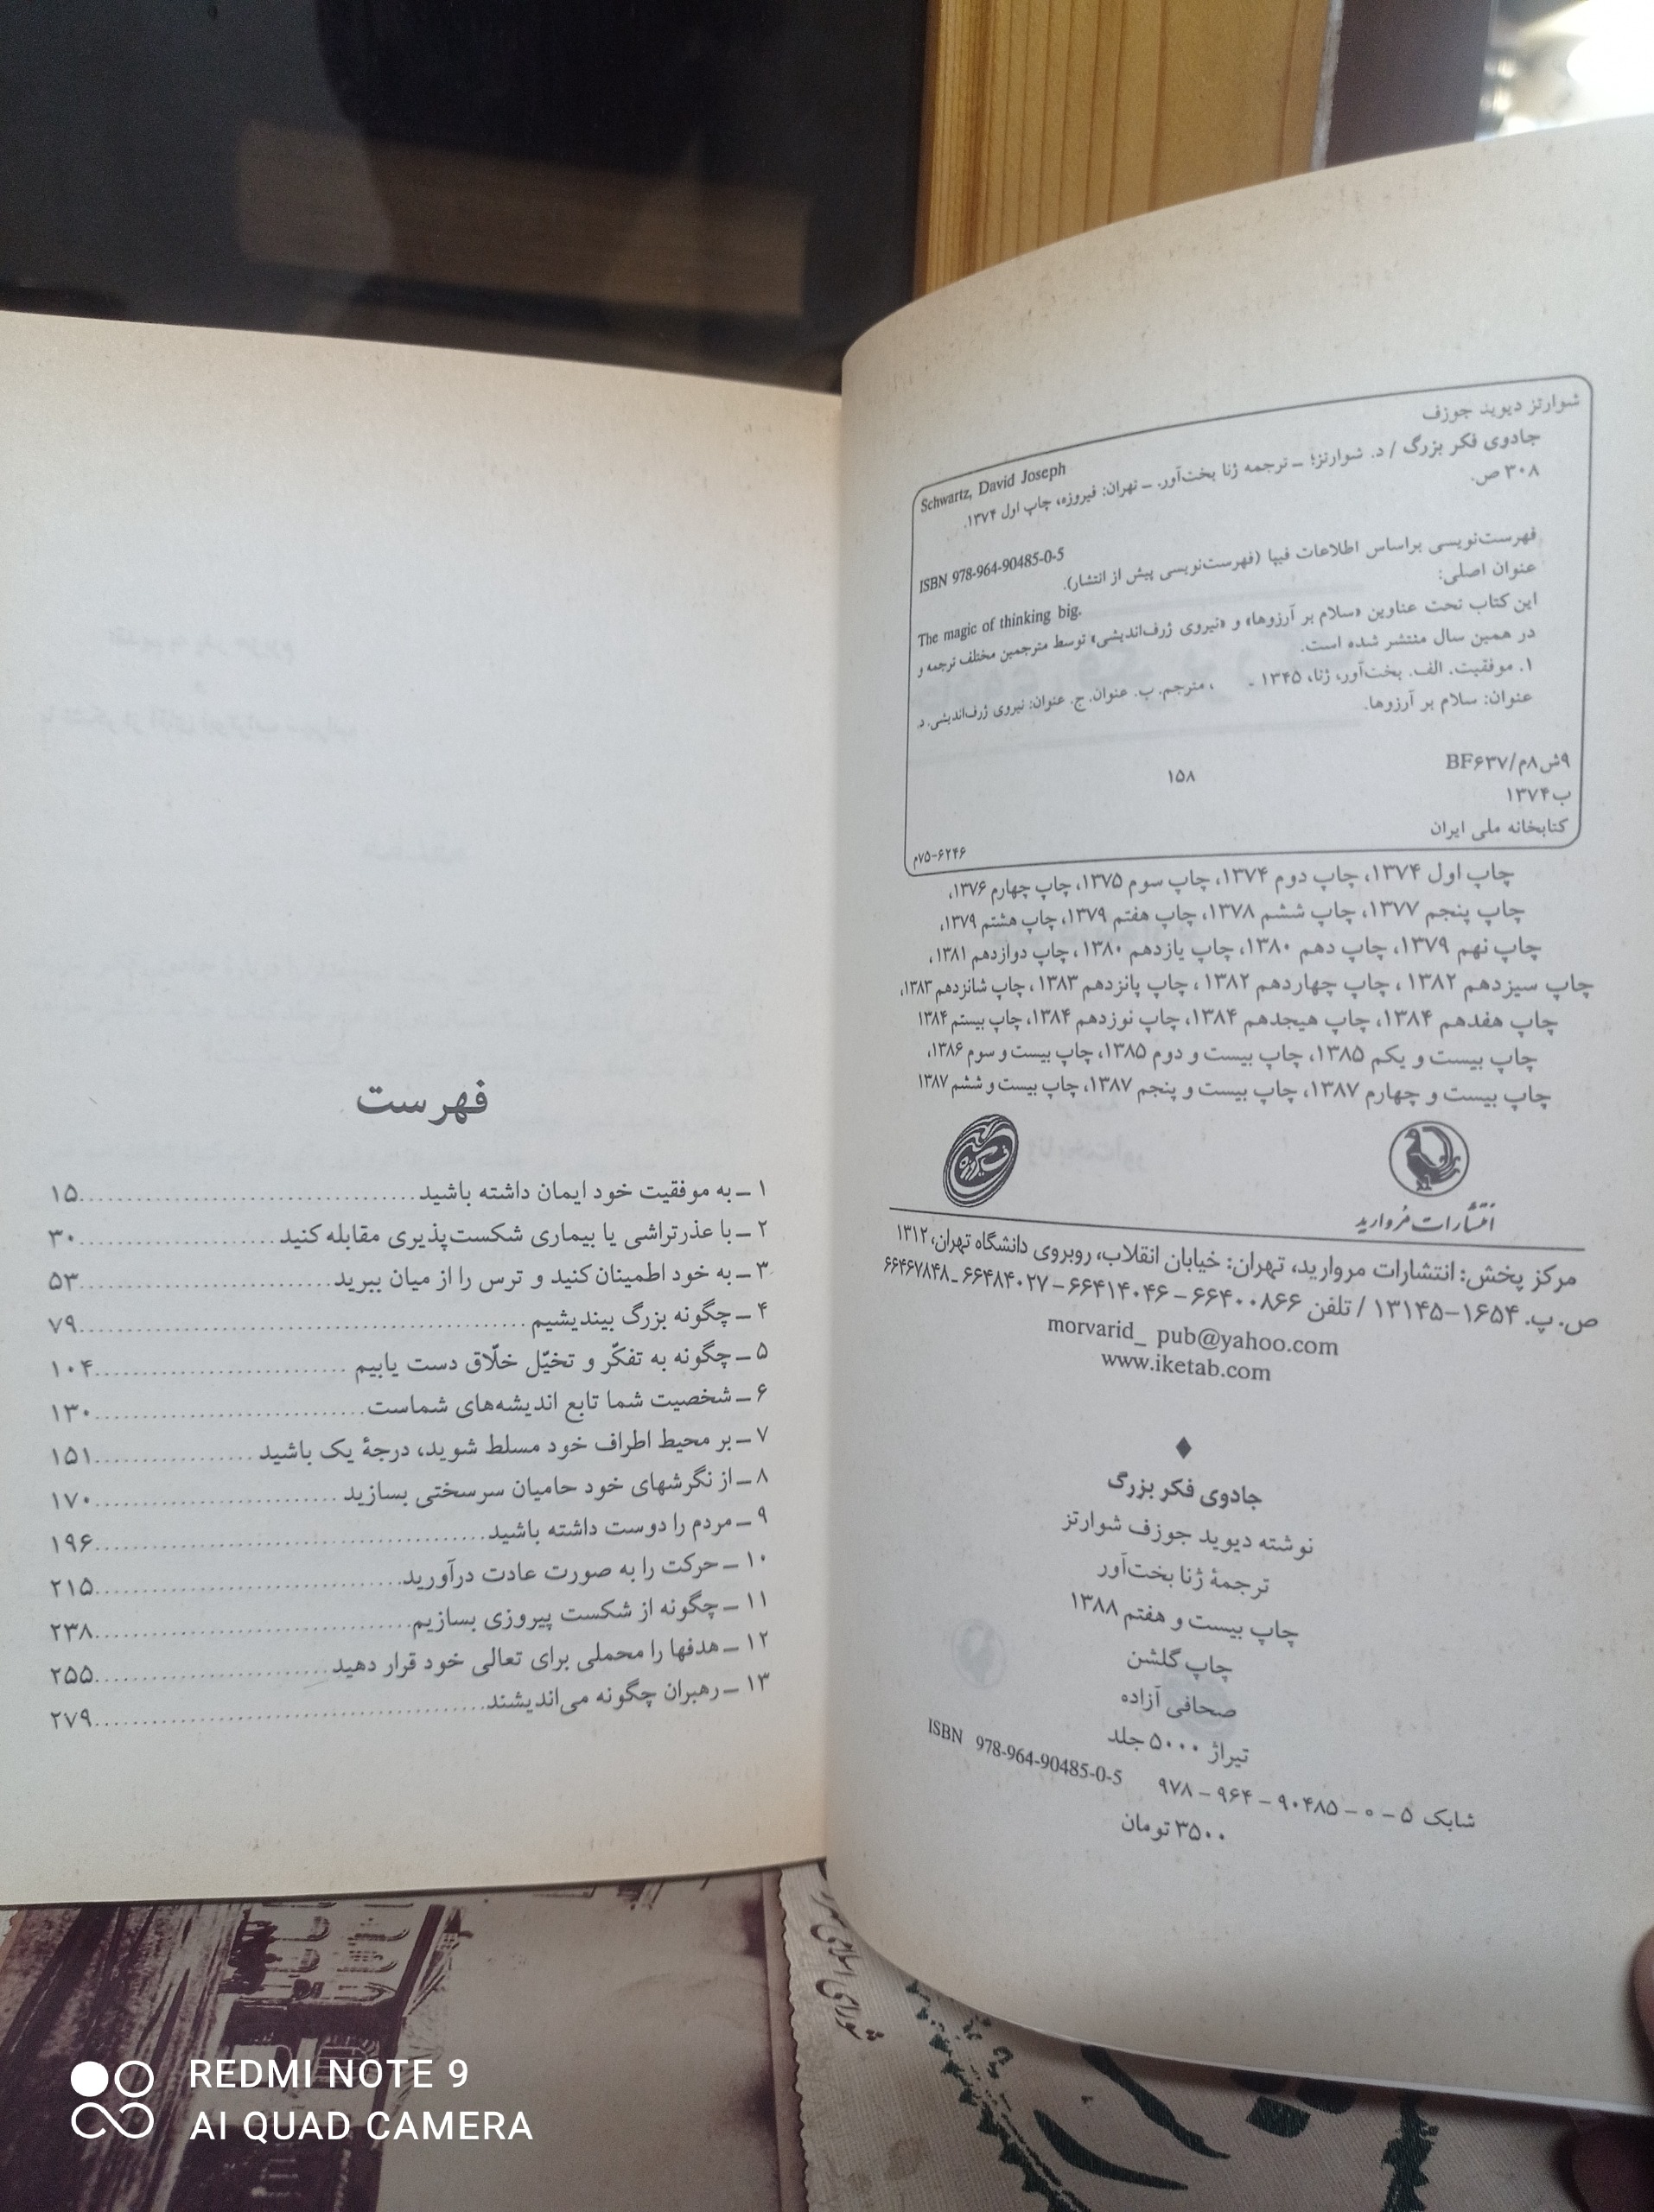 شوارتز دیوید جوزف
Schwartz, David Joseph
جادوی فکر بزرگ / د. شوارتز؛ ــ ترجمه ژنا بخت‌آور. ــ تهران: فیروزه، چاپ اول ۱۳۷۴.
۳۰۸ ص.
ISBN 978-964-90485-0-5
فهرست‌نویسی براساس اطلاعات فیپا (فهرست‌نویسی پیش از انتشار).
عنوان اصلی:
The magic of thinking big.
این کتاب تحت عناوین «سلام بر آرزوها» و «نیروی ژرف‌اندیشی» توسط مترجمین مختلف ترجمه و
در همین سال منتشر شده است.
۱. موفقیت. الف. بخت‌آور، ژنا، ۱۳۴۵ - ، مترجم. ب. عنوان. ج. عنوان: نیروی ژرف‌اندیشی. د.
عنوان: سلام بر آرزوها.
۹ش۸م/BF۶۳۷
۱۵۸
ب۱۳۷۴
کتابخانه ملی ایران
۷۵-۶۲۴۶م
چاپ اول ۱۳۷۴، چاپ دوم ۱۳۷۴، چاپ سوم ۱۳۷۵، چاپ چهارم ۱۳۷۶،
چاپ پنجم ۱۳۷۷، چاپ ششم ۱۳۷۸، چاپ هفتم ۱۳۷۹، چاپ هشتم ۱۳۷۹،
چاپ نهم ۱۳۷۹، چاپ دهم ۱۳۸۰، چاپ یازدهم ۱۳۸۰، چاپ دوازدهم ۱۳۸۱،
چاپ سیزدهم ۱۳۸۲، چاپ چهاردهم ۱۳۸۲، چاپ پانزدهم ۱۳۸۳، چاپ شانزدهم ۱۳۸۳،
چاپ هفدهم ۱۳۸۴، چاپ هیجدهم ۱۳۸۴، چاپ نوزدهم ۱۳۸۴، چاپ بیستم ۱۳۸۴
چاپ بیست و یکم ۱۳۸۵، چاپ بیست و دوم ۱۳۸۵، چاپ بیست و سوم ۱۳۸۶،
چاپ بیست و چهارم ۱۳۸۷، چاپ بیست و پنجم ۱۳۸۷، چاپ بیست و ششم ۱۳۸۷
فیروزه
انتشارات مروارید
مرکز پخش: انتشارات مروارید، تهران: خیابان انقلاب، روبروی دانشگاه تهران، ۱۳۱۲
ص. پ. ۱۶۵۴-۱۳۱۴۵ / تلفن ۶۶۴۰۰۸۶۶ - ۶۶۴۱۴۰۴۶ - ۶۶۴۸۴۰۲۷ - ۶۶۴۶۷۸۴۸
morvarid_ pub@yahoo.com
www.iketab.com
جادوی فکر بزرگ
نوشته دیوید جوزف شوارتز
ترجمهٔ ژنا بخت‌آور
چاپ بیست و هفتم ۱۳۸۸
چاپ گلشن
صحافی آزاده
تیراژ ۵۰۰۰ جلد
شابک ۵ - ۰ - ۹۰۴۸۵ - ۹۶۴ - ۹۷۸ ISBN 978-964-90485-0-5
۳۵۰۰ تومان
فهرست
۱ ــ به موفقیت خود ایمان داشته باشید ........ ۱۵
۲ ــ با عذرتراشی یا بیماری شکست‌پذیری مقابله کنید ........ ۳۰
۳ ــ به خود اطمینان کنید و ترس را از میان ببرید ........ ۵۳
۴ ــ چگونه بزرگ بیندیشیم ........ ۷۹
۵ ــ چگونه به تفکّر و تخیّل خلّاق دست یابیم ........ ۱۰۴
۶ ــ شخصیت شما تابع اندیشه‌های شماست ........ ۱۳۰
۷ ــ بر محیط اطراف خود مسلط شوید، درجهٔ یک باشید ........ ۱۵۱
۸ ــ از نگرشهای خود حامیان سرسختی بسازید ........ ۱۷۰
۹ ــ مردم را دوست داشته باشید ........ ۱۹۶
۱۰ ــ حرکت را به صورت عادت درآورید ........ ۲۱۵
۱۱ ــ چگونه از شکست پیروزی بسازیم ........ ۲۳۸
۱۲ ــ هدفها را محملی برای تعالی خود قرار دهید ........ ۲۵۵
۱۳ ــ رهبران چگونه می‌اندیشند ........ ۲۷۹
شورای اسلامی
REDMI NOTE 9
AI QUAD CAMERA